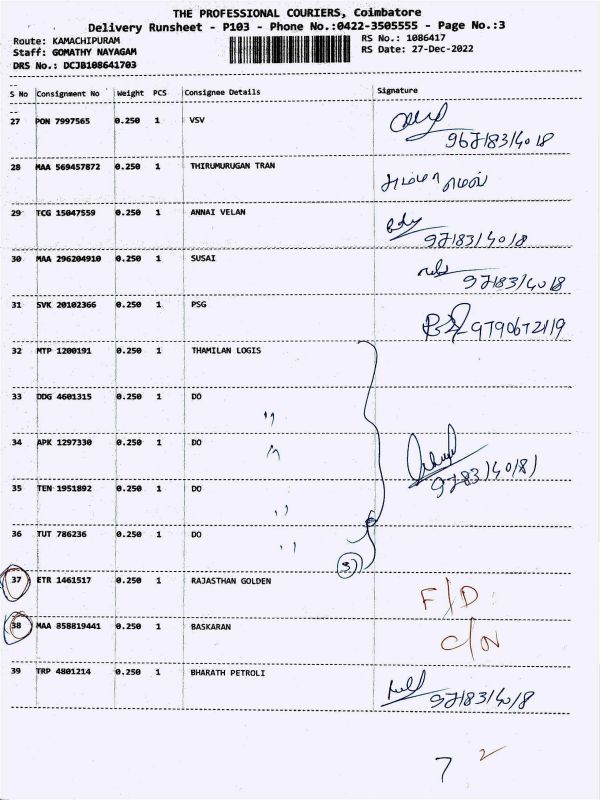 THE PROFESSIONAL COURIERS, Coimbatore
Delivery Runsheet - P103 - Phone No.:0422-3505555 - Page No.:3
Route: KAMACHIPURAM
RS No.: 1086417
Staff: GOMATHY NAYAGAM
RS Date: 27-Dec-2022
DRS No.: DCJB108641703
S No Consignment No Weight PCS Consignee Details Signature
27 PON 7997565 0.250 1 VSV
28 MAA 569457872 0.250 1 THIRUMURUGAN TRAN
29 TCG 15047559 0.250 1 ANNAI VELAN
30 MAA 296204910 0.250 1 SUSAI
31 SVK 20102366 0.250 1 PSG 9790672119
32 MTP 1200191 0.250 1 THAMILAN LOGIS
33 DDG 4601315 0.250 1 DO
"
34 APK 1297330 0.250 1 DO
"
35 TEN 1951892 0.250 1 DO
"
36 TUT 786236 0.250 1 DO
"
37 ETR 1461517 0.250 1 RAJASTHAN GOLDEN F/D
38 MAA 858819441 0.250 1 BASKARAN C/N
39 TRP 4801214 0.250 1 BHARATH PETROLI
7 2